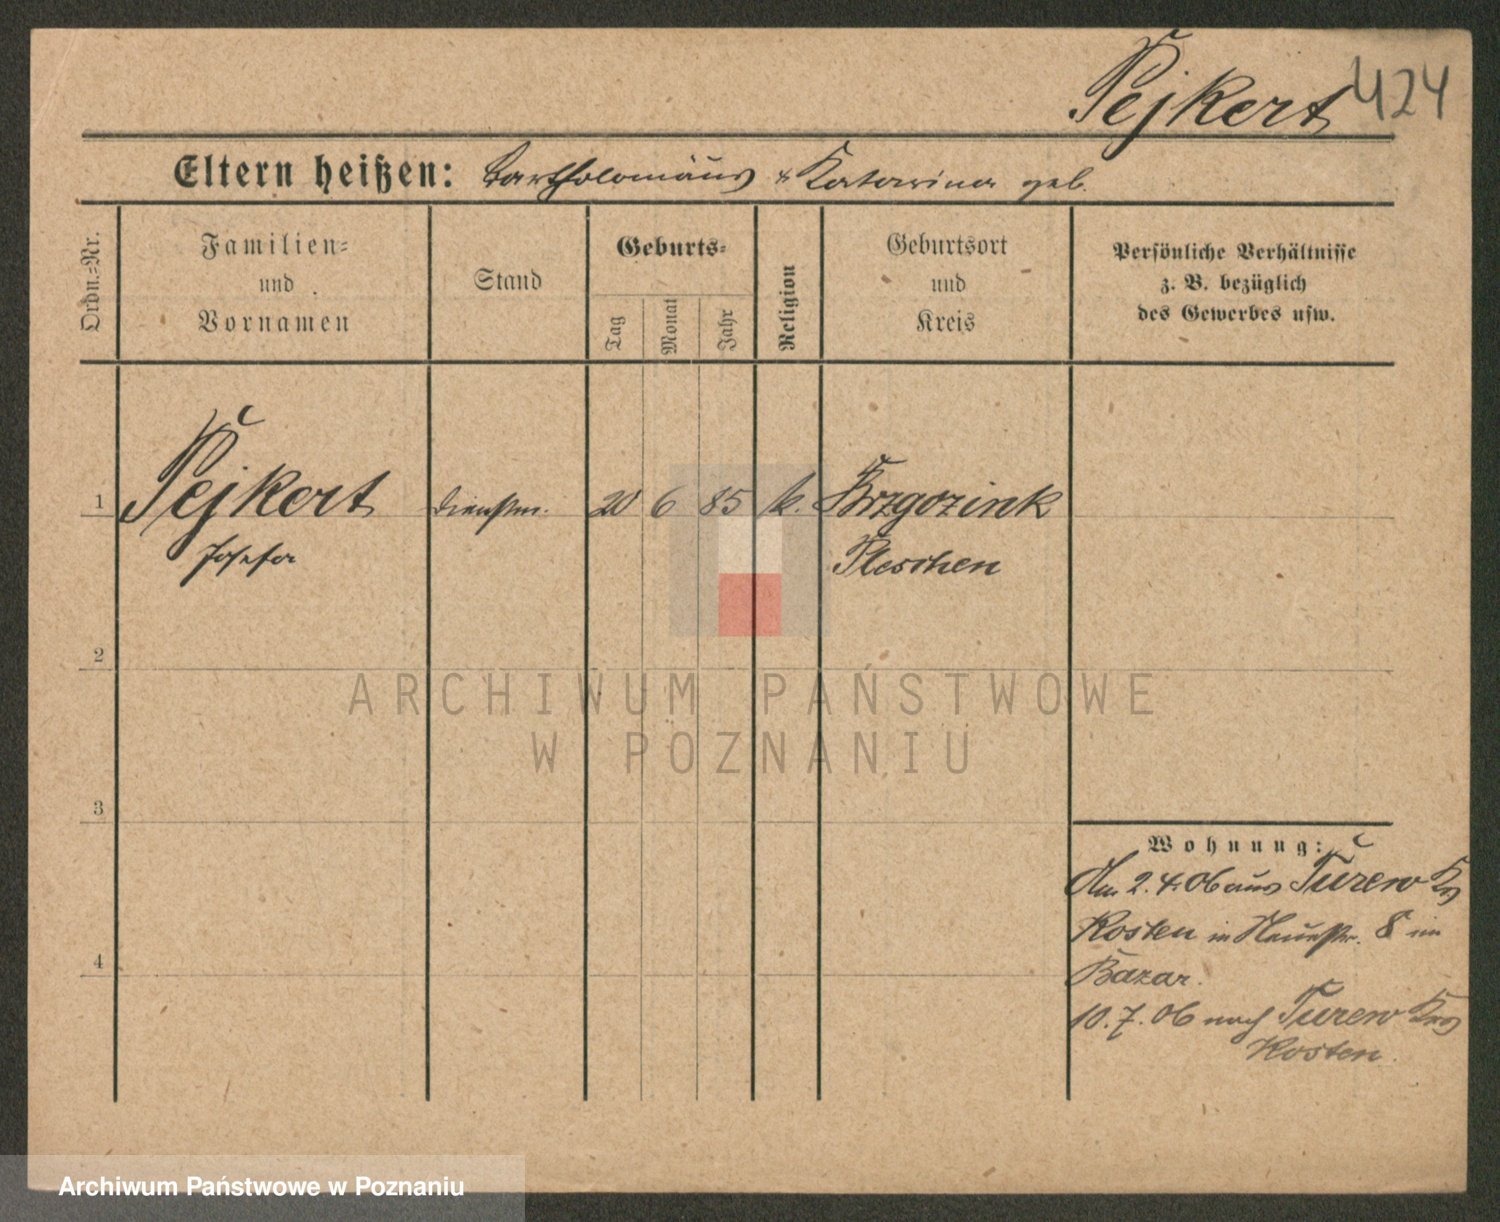 Pejkert 424
Eltern heißen: Bartholomäus & Katarina geb.
Ordn.=Nr.
Familien=
und
Vornamen
Stand
Geburts=
Tag
Monat
Jahr
Religion
Geburtsort
und
Kreis
Persönliche Verhältnisse
z. B. bezüglich
des Gewerbes usw.
1 Pejkert Dienstm. 20 6 85 k. Brzgozink
Josefa Pleschen
2
ARCHIWUM PAŃSTWOWE
W POZNANIU
3
Wohnung:
Am 2.4.06 aus Turew Krs
Kosten in Neuestr. 8 im
4
Bazar.
10.7.06 nach Turew Krs
Kosten.
Archiwum Państwowe w Poznaniu